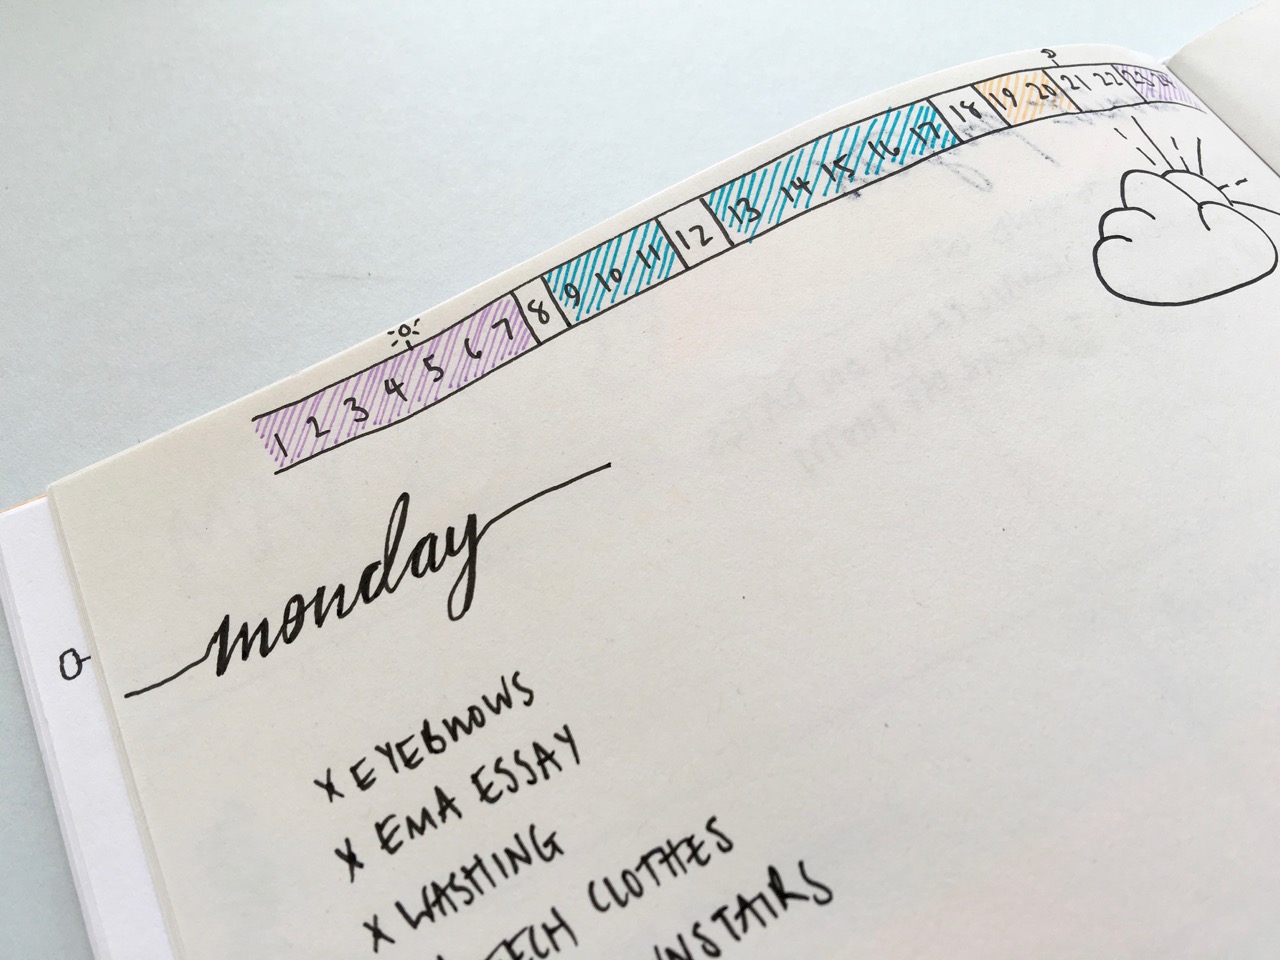 1 2 3 4 5 6 7 8 9 10 11 12 13 14 15 16 17 18 19 20 21 22 23 24
monday
x EYEBROWS
x EMA ESSAY
x WASHING
CLOTHES